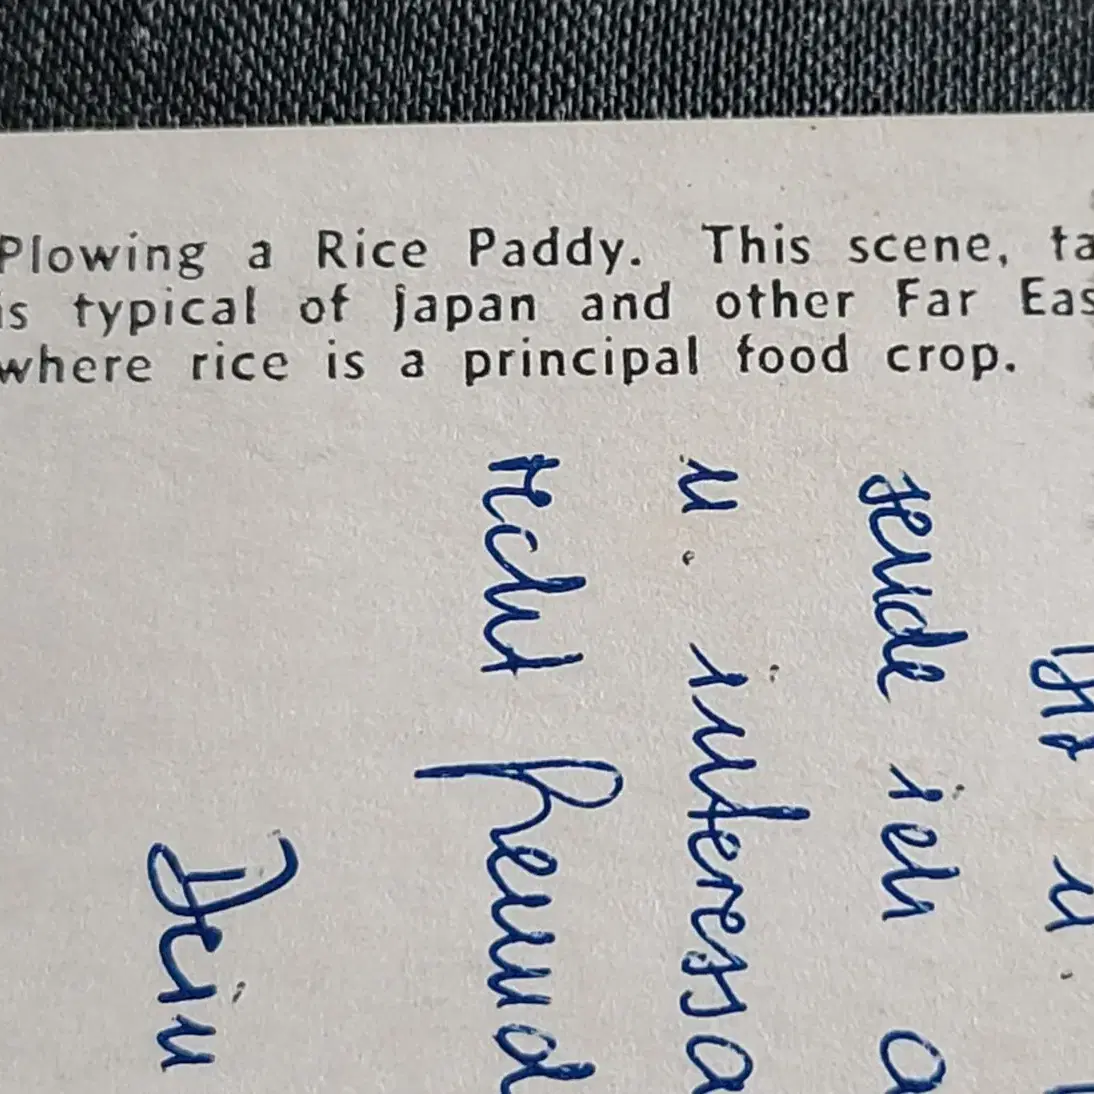 Plowing a Rice Paddy. This scene, ta
is typical of Japan and other Far Eas
where rice is a principal food crop.
u.
sende ich a
u. interessa
recht freund
Dein